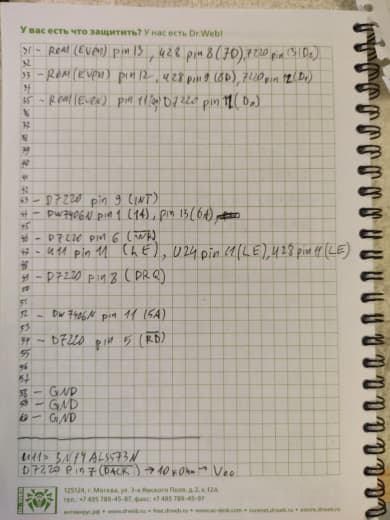 У вас есть что защитить? У нас есть Dr.Web!
31 - ROM (Even) pin 13, U28 pin 8 (7D), 7220 pin 13 (D2)
32
33 - ROM (Even) pin 12, U28 pin 9 (8D), 7220 pin 12 (D1)
34
35 - ROM (Even) pin 11 D7220 pin (D0)
36
37
38
39
40
41
42
43 - D7220 pin 9 (INT)
44 - DW7406N pin 1 (1A), pin 13 (6A),
45
46 - D7220 pin 6 (WR)
47 - U11 pin 11 (LE), U24 pin 11 (LE), U28 pin 11 (LE)
48
49 - D7220 pin 8 (DRQ)
50
51
52 - DW7406N pin 11 (5A)
53
54 - D7220 pin 5 (RD)
55
56
57
58 - GND
59 - GND
60 - GND
U11 = SN74ALS573N
D7220 Pin 7 (DACK) → 10 кОм - Vcc
125124, г. Москва, ул. 3-я Ямского Поля, д.2, к.12А.
тел.: +7 495 789-45-87, факс: +7 495 789-45-97
антивирус.рф • www.drweb.ru • www.av-desk.com • curenet.drweb.ru •